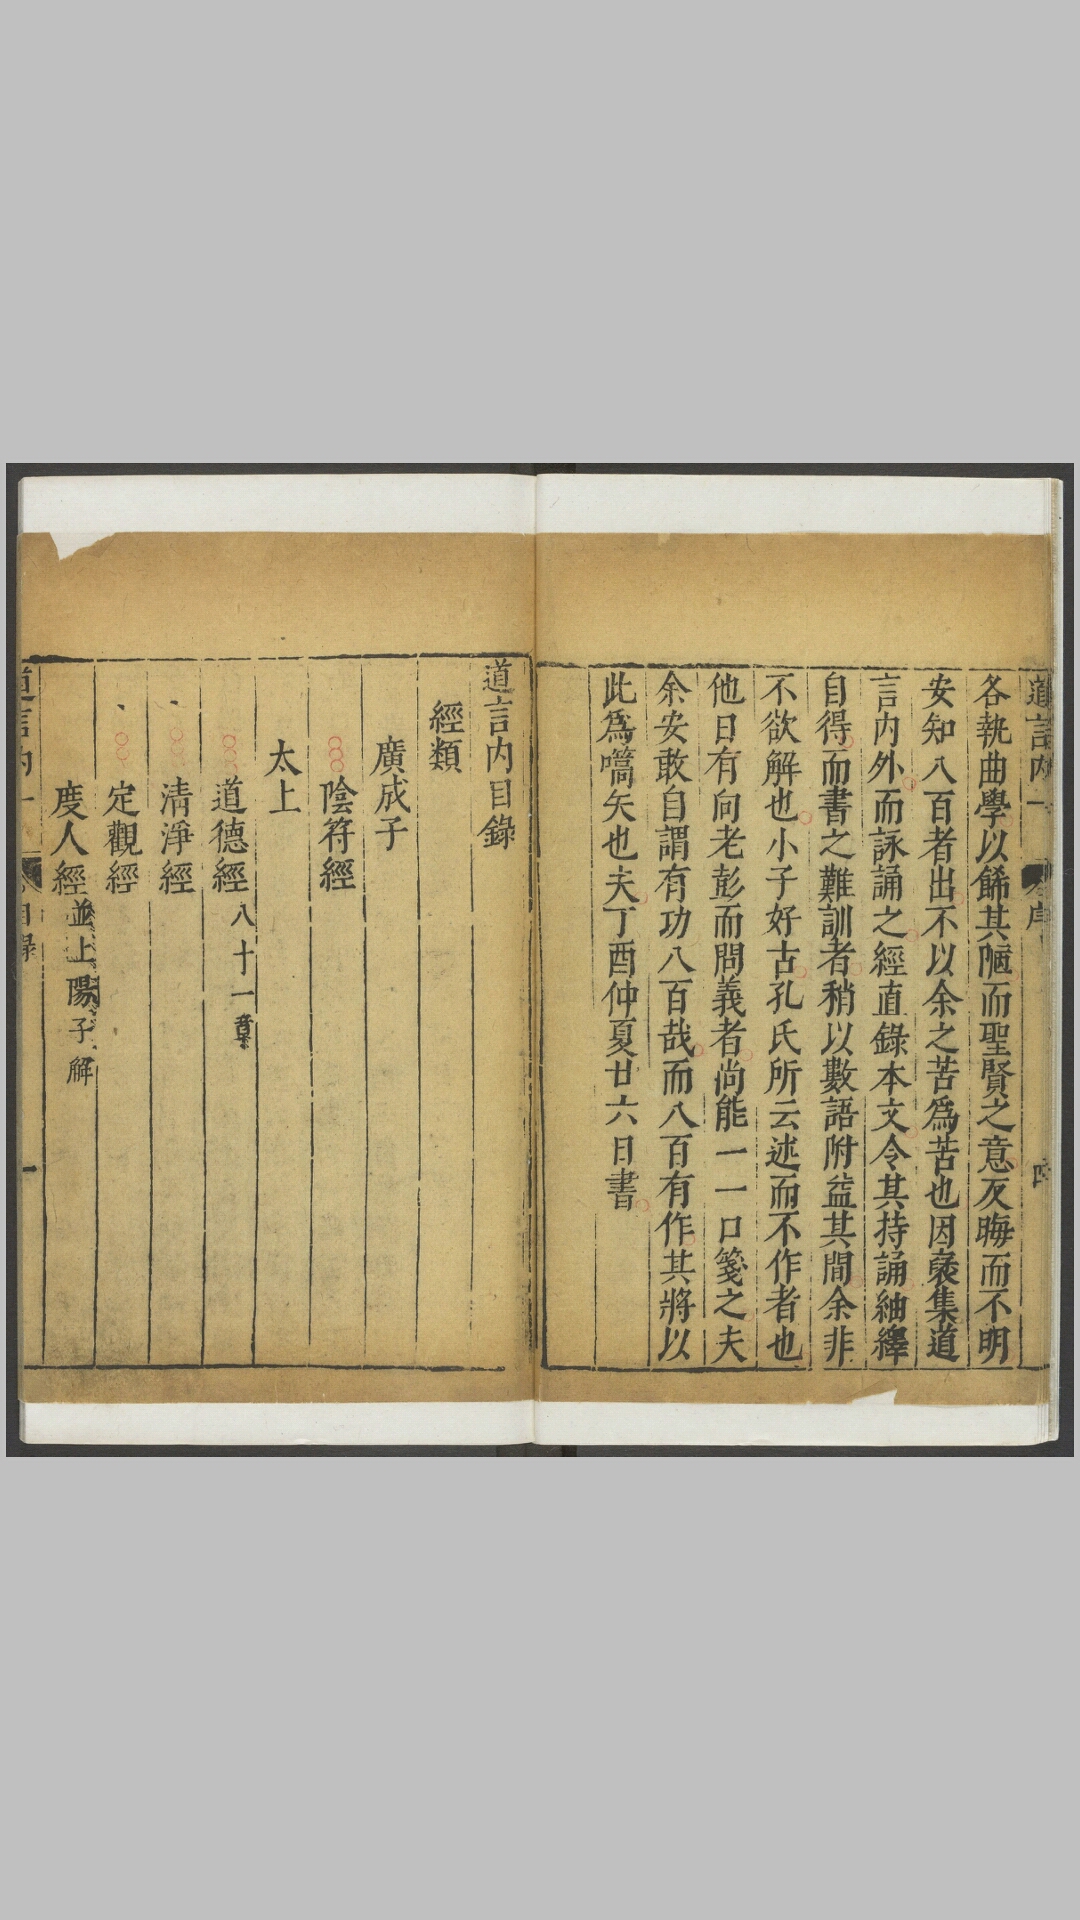 各執曲學以餙其陋而聖賢之意反晦而不明
安知八百者出不以余之苦爲苦也因裒集道
言内外而詠誦之經直錄本文令其持誦紬繹
自得而書之難訓者稍以數語附益其間余非
不欲解也小子好古孔氏所云述而不作者也
他日有向老彭而問義者尚能一一口箋之夫
余安敢自謂有功八百哉而八百有作其將以
此爲嚆矢也夫丁酉仲夏廿六日書
道言内目錄
經類
廣成子
陰符經
太上
道德經八十一章
清淨經
定觀經
度人經並上陽子解
道言内一 目錄 一